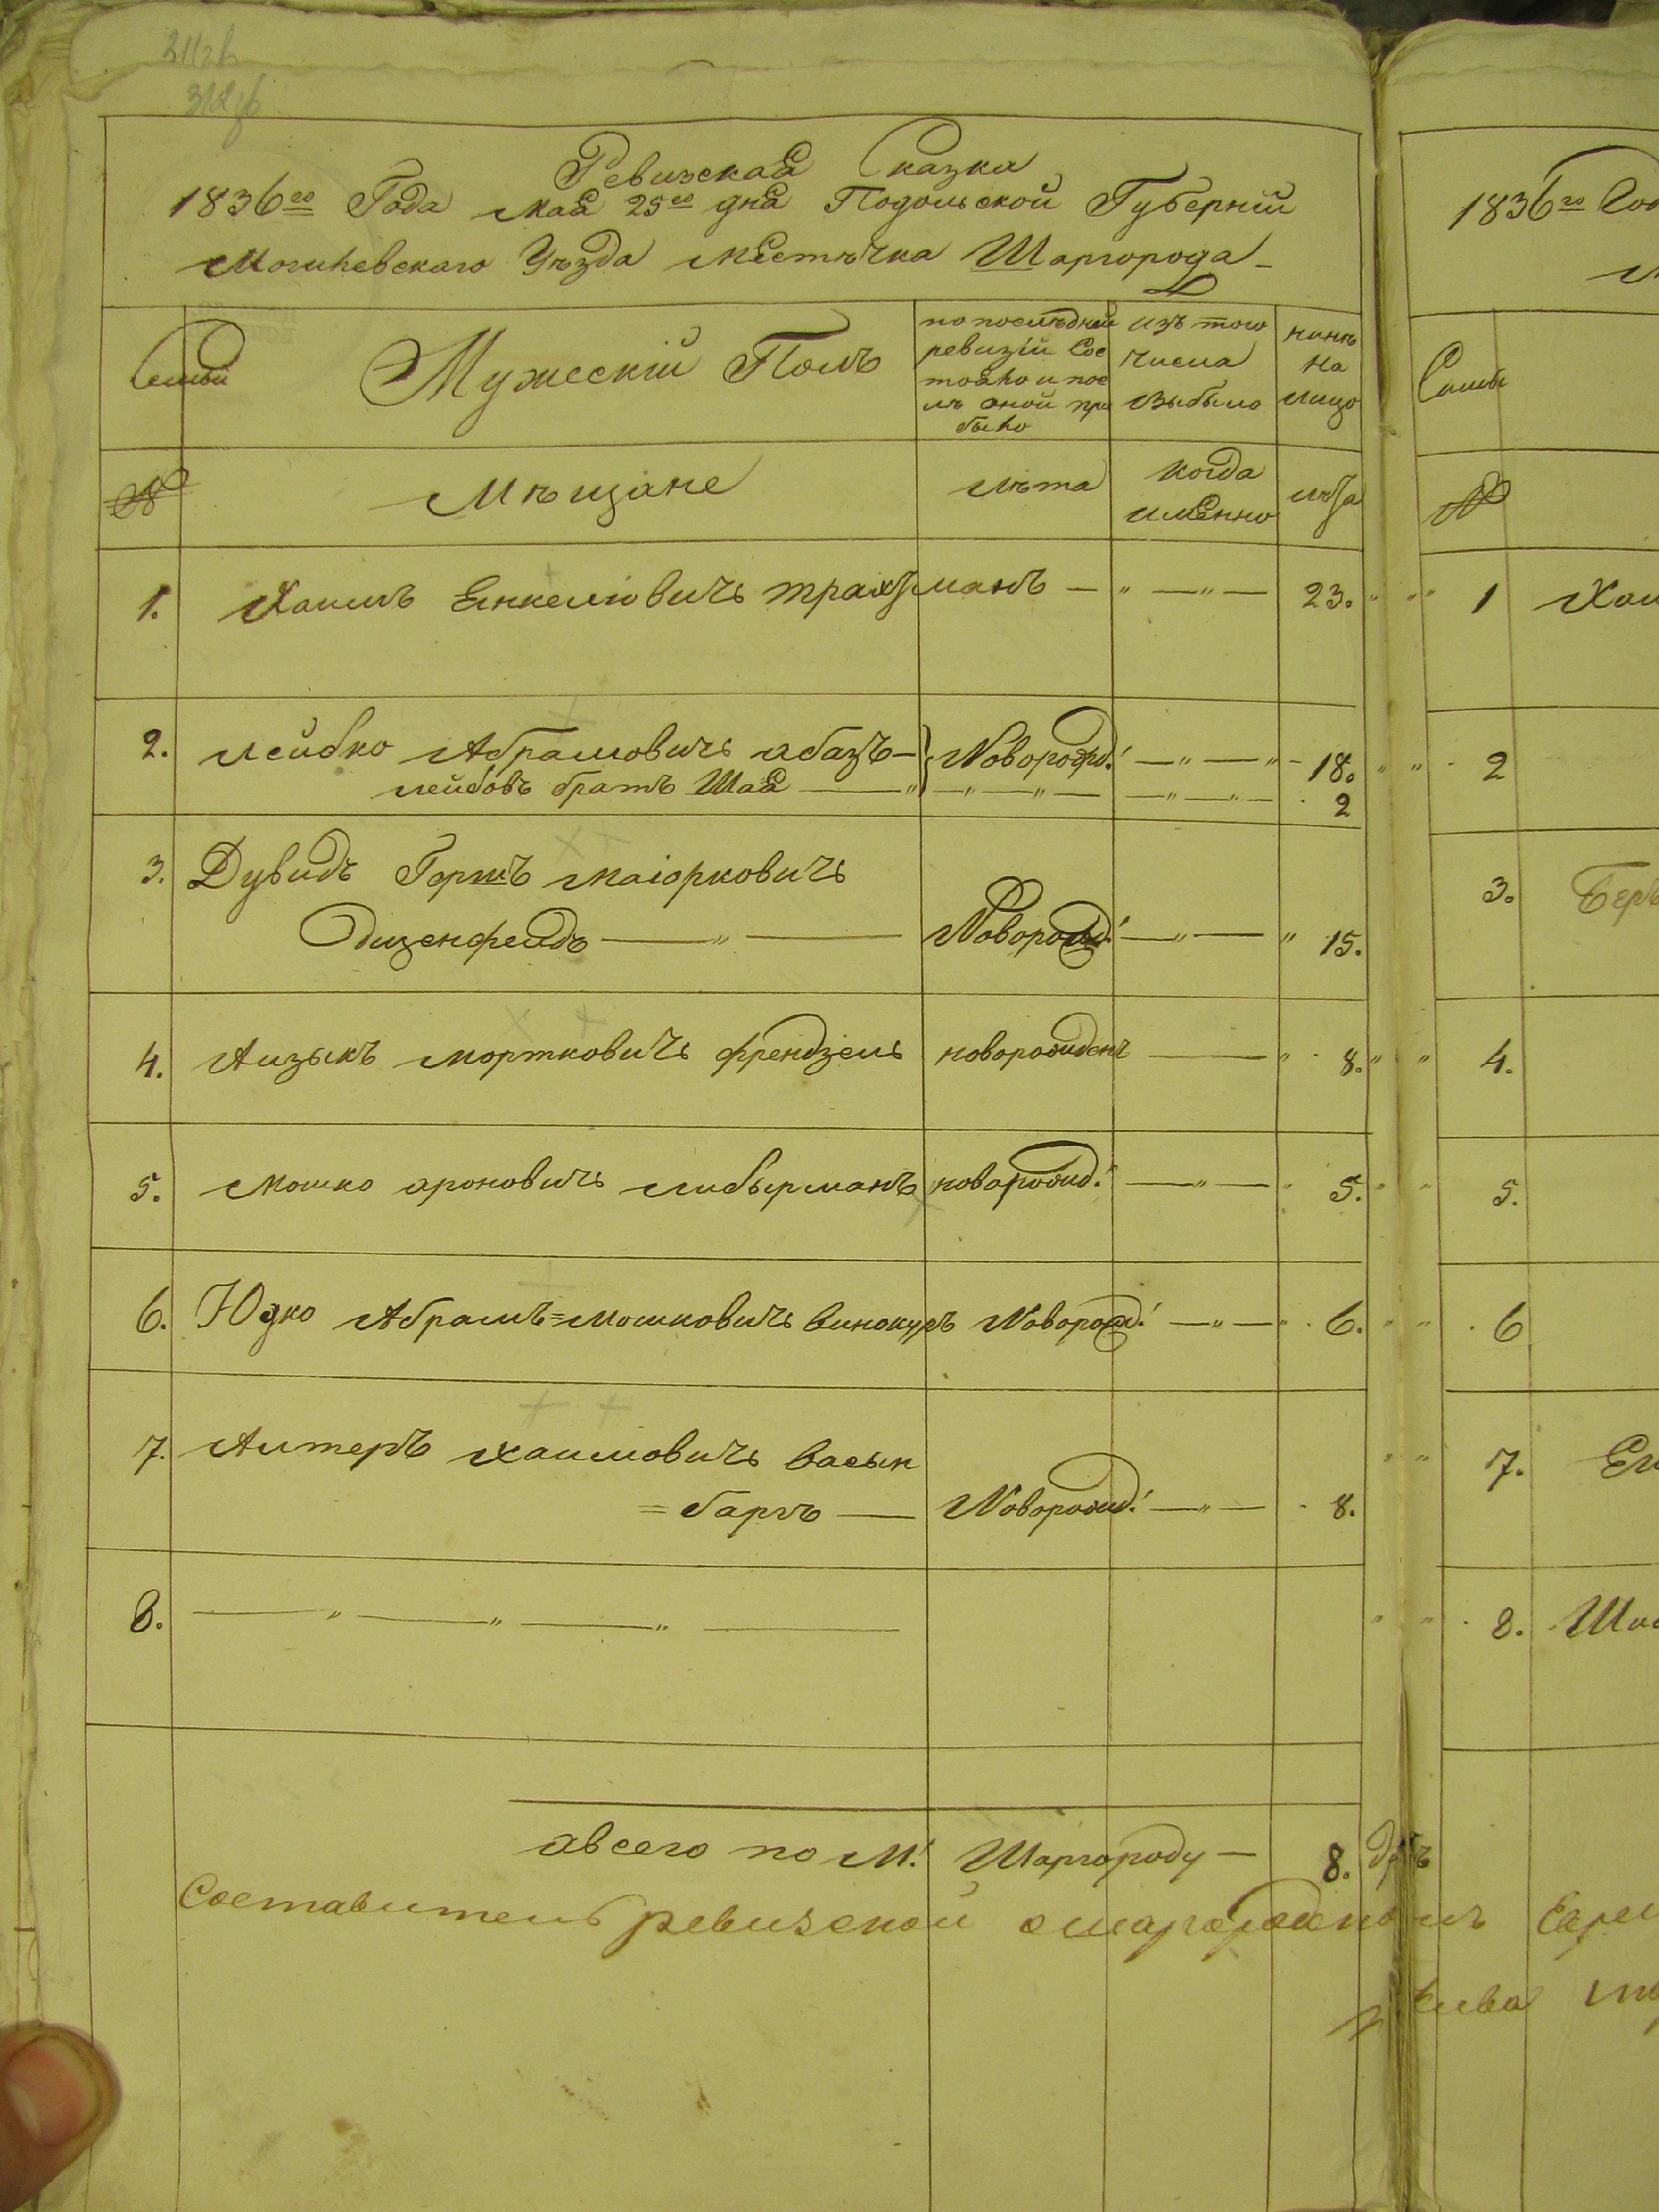 Ревизская Сказка
1836го Года мая 25го дня Подольской Губернiи
Могилевскаго Уѣзда местѣчка Шаргорода
Семьи
Мужескiй Полъ
по последней ревизiи Состояло и послѣ оной прибыло
изъ того числа выбыло
нинѣ на лицо
№
Мѣщане
лѣта
когда именно
лѣта
1. Хаимъ Енкелiовичъ трахтманъ — " — " — 23.
2. лейбко Абрамовичъ абазъ — Новорожд. — " — " - 18.
лейбовъ братъ Шая — " — " — " — 2
3. Дувидъ Гершъ маiорковичъ
Дизенфелдъ — " — Новорожд. — " — " 15.
4. Аизыкъ мортковичъ френдзель новорожденъ — " 8.
5. мошко ароновичъ либырманъ новорожд. — " — 5.
6. Юдко Абрамъ=мошковичъ винокуръ Новорожд. — " — 6.
7. Алтеръ хаимовичъ васын
=баргъ — Новорожд. — " — 8.
8. — " — " — " —
авсего по М. Шаргороду — 8. душъ
Составитель ревизской
1836го
Семьи
№
1 Хаи
2
3. Беръ
4.
5.
6
7.
8.